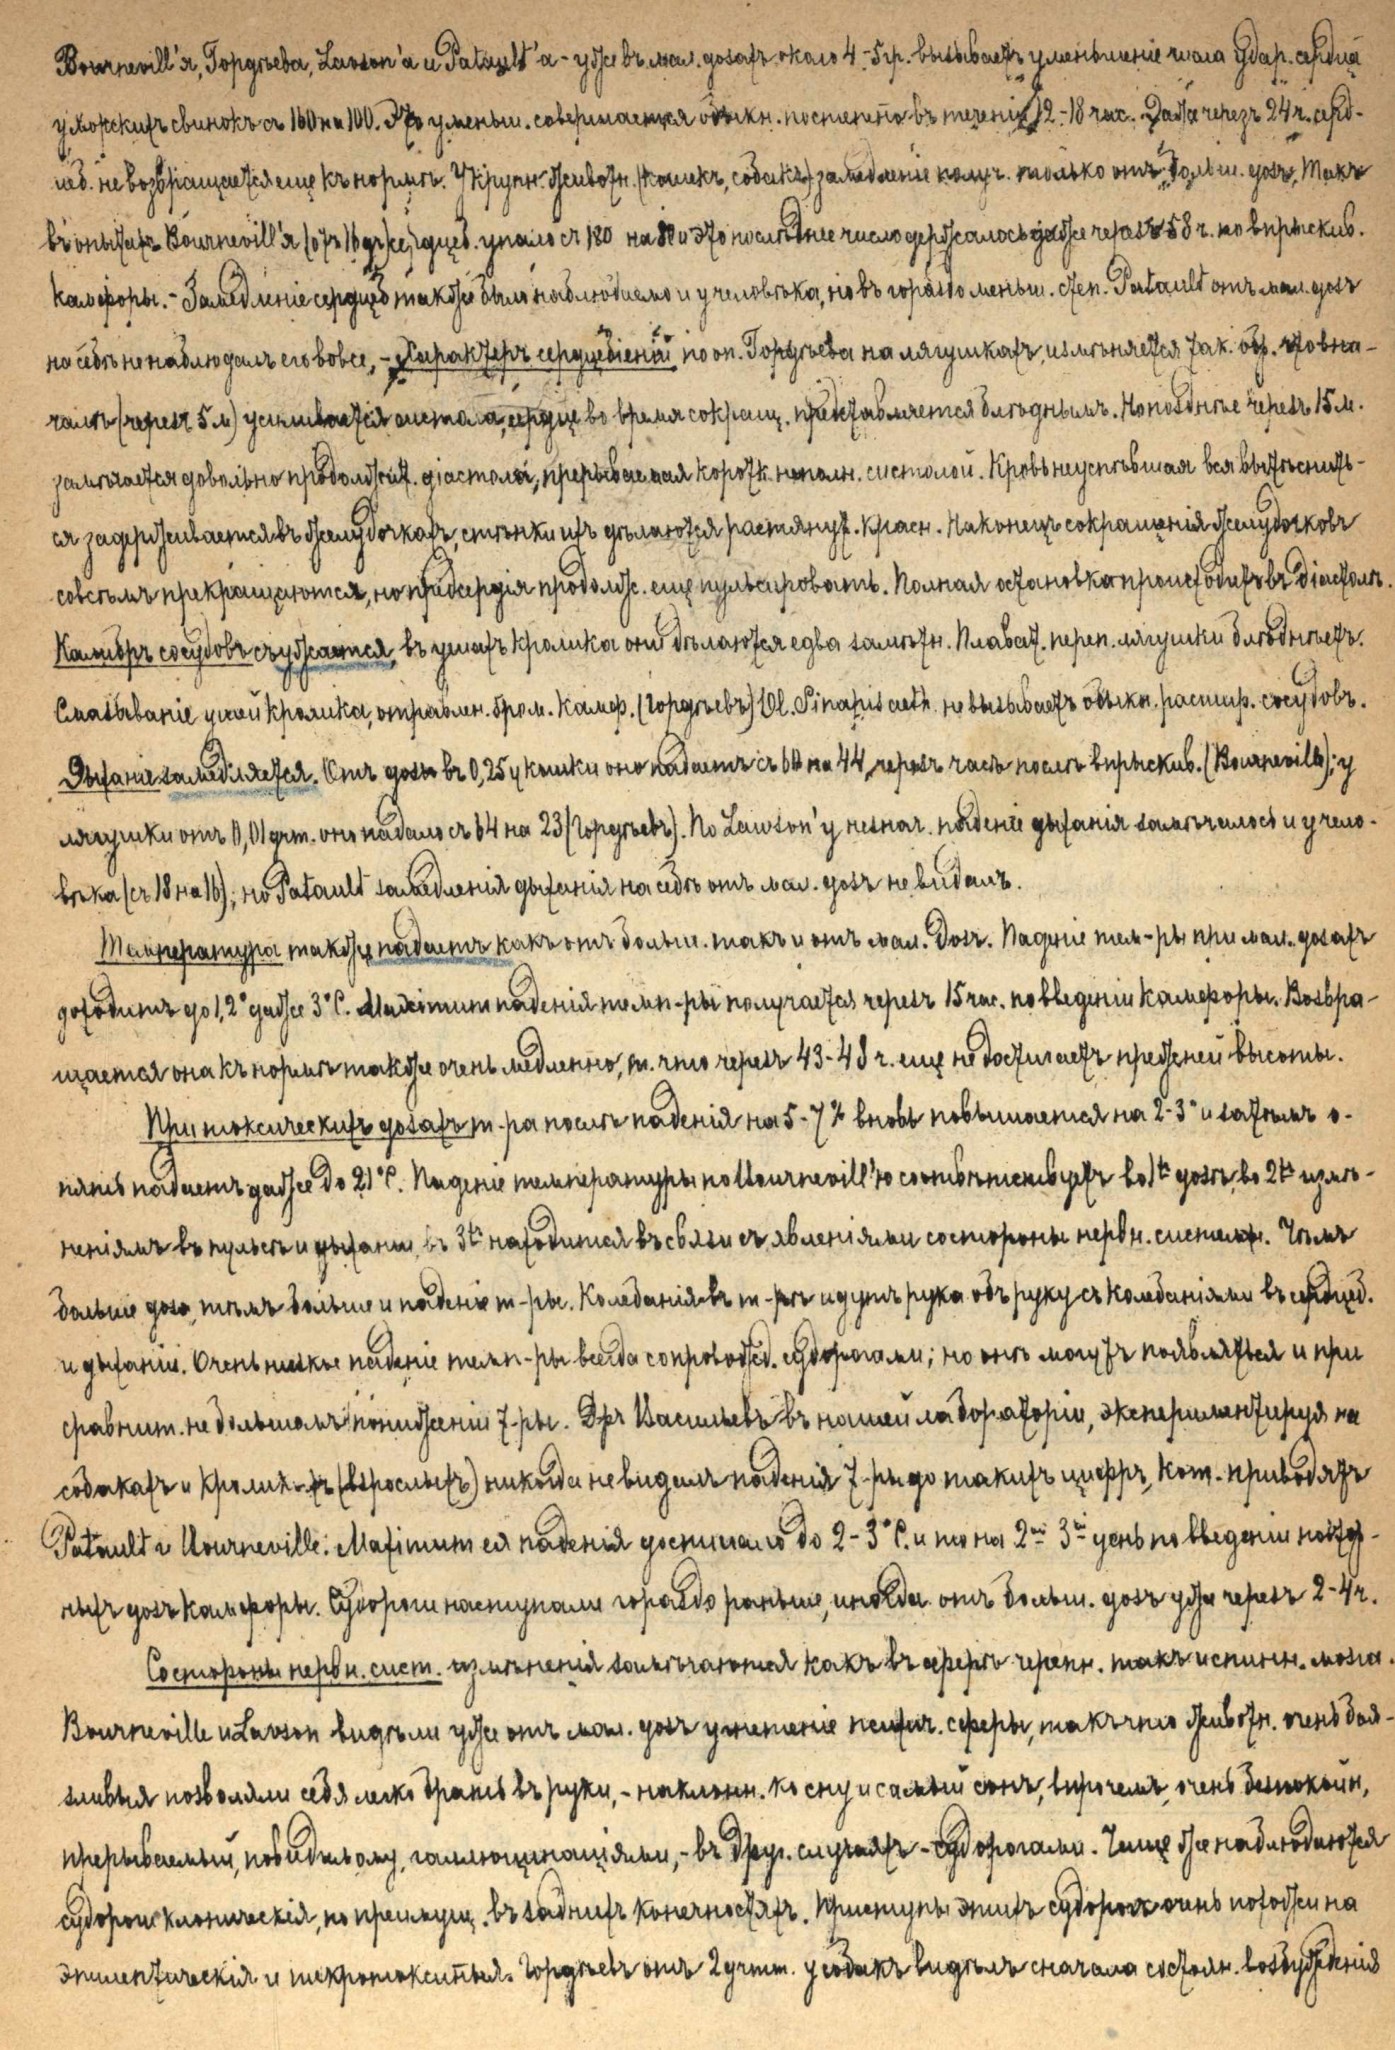 Bournevill'я, Гордѣева, Lawson'а и Patault'а - уже въ мал. дозахъ около 4-5 гр. вызываетъ уменьшеніе числа удар. сердца
у морскихъ свинокъ съ 160 на 100. Это уменьш. совершается обыкн. постепенно въ теченіи 12-18 час. Даже черезъ 24 ч. серд-
цеб. не возвращается еще къ нормѣ. У крупн. животн. (кошекъ, собакъ) замедленіе получ. только отъ больш. дозъ. Такъ
въ опытахъ Bournevill'я сердцеб. упало съ 180 на 80 и это послѣднее число держалось даже черезъ 58 ч. по впрыскив.
камфоры. - Замедленіе сердцеб. также было наблюдаемо и у человѣка, но въ гораздо меньш. степ. Patault отъ мал. дозъ
на себѣ не наблюдалъ его вовсе, - Характеръ сердцебіеній по оп. Гордѣева на лягушкахъ, измѣняется так. обр. что вна-
чалѣ (черезъ 5 м) усиливается систола, сердце во время сокращ. представляется блѣднымъ. Но позднѣе черезъ 15 м.
замѣчается довольно продолжит. діастола, прерываемая коротк. неполн. систолой. Кровь неуспѣвшая вся вытѣснить-
ся задерживается въ желудочкахъ, стѣнки ихъ дѣлаются растянут. красн. Наконецъ сокращенія желудочковъ
совсѣмъ прекращаются, но предсердія продолж. еще пульсировать. Полная остановка происходитъ въ діастолѣ.
Калибръ сосудовъ съуживается, въ ушахъ кролика они дѣлаются едва замѣтн. Плават. переп. лягушки блѣднѣетъ.
Смазываніе ушей кролика, отравлен. бром. камф. (Гордѣевъ) Ol. Sinapis aeth. не вызываетъ обыкн. расшир. сосудовъ.
Дыханіе замедляется. Отъ дозы въ 0,25 у кошки оно падаетъ съ 64 на 44, черезъ часъ послѣ впрыскив. (Bourneville); у
лягушки отъ 0,01 grm. оно падало съ 64 на 23 (Гордѣевъ). По Lawson'у незнач. паденіе дыханія замѣчалось и у чело-
вѣка (съ 18 на 16); но Patault замедленія дыханія на себѣ отъ мал. дозъ не видалъ.
Температура также падаетъ какъ отъ больш. такъ и отъ мал. дозъ. Паденіе тем-ры при мал. дозахъ
доходитъ до 1,2° даже 3°C. Maximum паденія темп-ры получается черезъ 15 час. по введеніи камфоры. Возвра-
щается она къ нормѣ также очень медленно, т. что черезъ 43-48 ч. еще не достигаетъ прежней высоты.
При токсическихъ дозахъ т-ра послѣ паденія на 5-7° вновь повышается на 2-3° и затѣмъ о-
пять падаетъ даже до 21°C. Паденіе температуры по Bournevill'ю соотвѣтствуетъ во 1хъ дозѣ, во 2хъ измѣ-
неніямъ въ пульсѣ и дыханіи, въ 3хъ находится въ связи съ явленіями со стороны нервн. системы. Чѣмъ
больше доза, тѣмъ больше и паденіе т-ры. Колебанія въ т-рѣ идутъ рука объ руку съ колебаніями въ сердцеб.
и дыханіи. Очень низкое паденіе темп-ры всегда сопровожд. судорогами; но онѣ могутъ появляться и при
сравнит. небольшомъ пониженіи т-ры. Д-ръ Васильевъ въ нашей лабораторіи, экспериментируя на
собакахъ и кроликахъ (взрослыхъ) никогда не видалъ паденія т-ры до такихъ цифръ, кот. приводятъ
Patault и Bourneville: Maximum ея паденія достигало до 2-3°C. и то на 2й 3й день по введеніи повтор-
ныхъ дозъ камфоры. Судороги наступали гораздо раньше, иногда отъ больш. дозъ уже черезъ 2-4 ч.
Со стороны нервн. сист. измѣненія замѣчаются какъ въ сферѣ черепн. такъ и спинн. мозга.
Bourneville и Lawson видѣли уже отъ мал. дозъ угнетеніе психич. сферы, такъ что животн. очень бояз-
ливыя позволяли себя легко брать въ руки, - наклонн. ко сну и самый сонъ, впрочемъ, очень безпокойн,
прерываемый, повидимому, галлюцинаціями, - въ друг. случаяхъ - судорогами. Чаще же наблюдаются
судороги клоническія, по преимущ. въ заднихъ конечностяхъ. Приступы этихъ судорогъ очень похожи на
эпилептическія и пикротоксинныя. Гордѣевъ отъ 2 grm. у собакъ видѣлъ сначала состоян. возбужденія